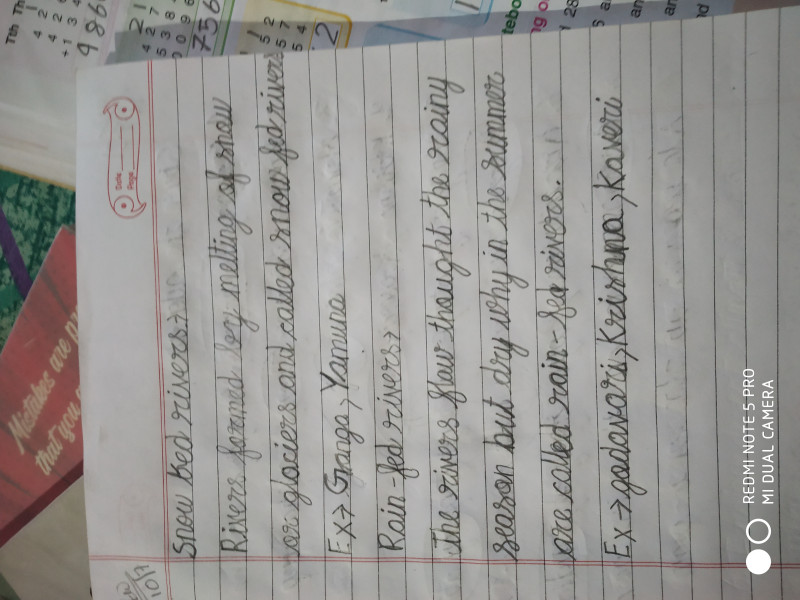 Snow ked rivers→
Rivers formed bey melting of snow
or glaciers and called snow fed rivers
Ex→ Ganga, Yamuna
Rain-fed rivers→
The rivers flow thought the rainy
season but dry why in the summer
are called rain-fed rivers.
Ex→godavari, Krishna, Kaveri
Date
Page
Mistakes are
that you
Tth Th
756
2
REDMI NOTE 5 PRO
MI DUAL CAMERA